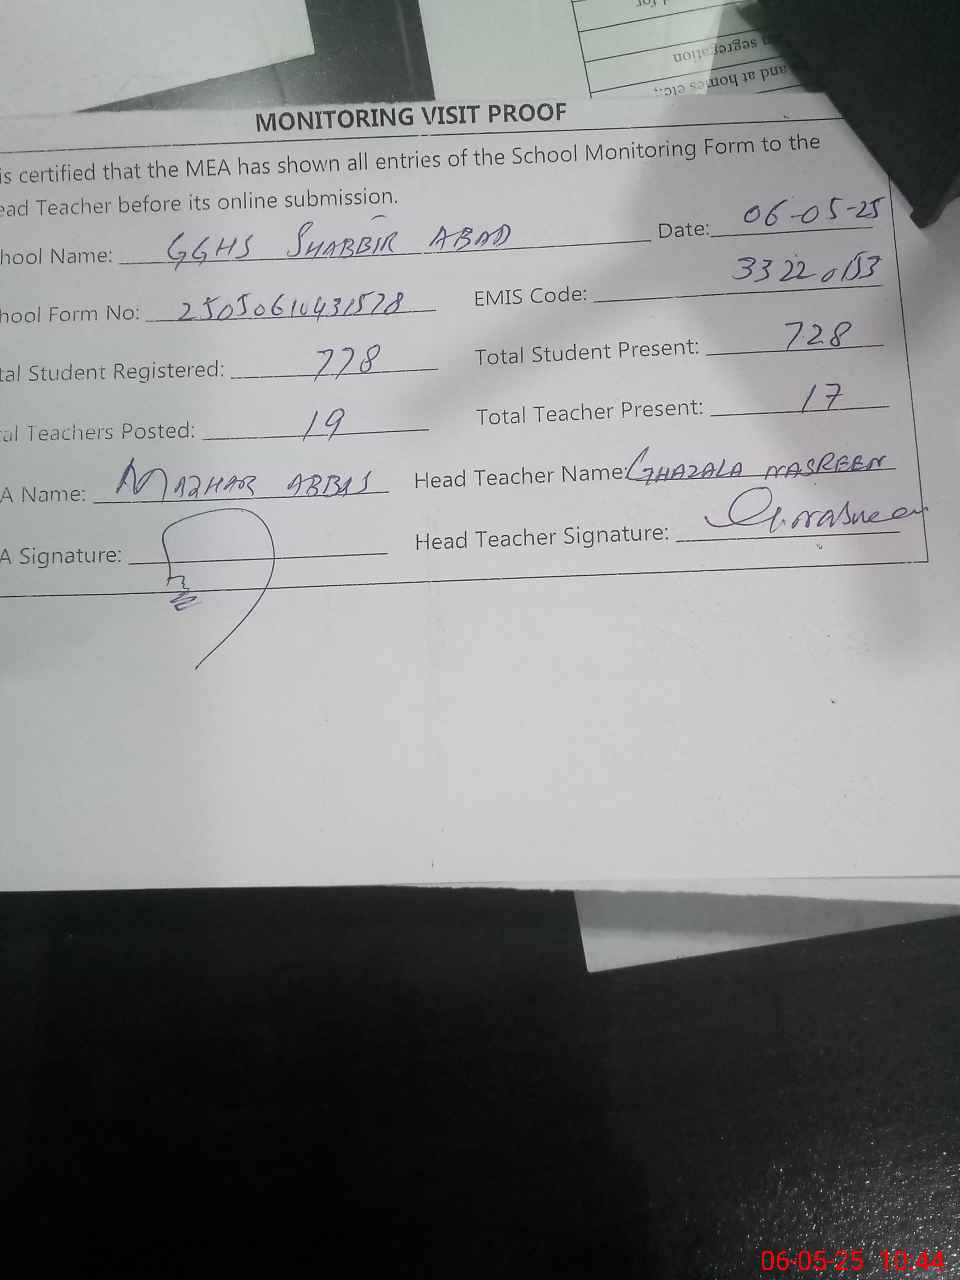 for
segregation
and at homes etc.,
MONITORING VISIT PROOF
is certified that the MEA has shown all entries of the School Monitoring Form to the
ead Teacher before its online submission.
hool Name: GGHS SHABBIR ABAD Date: 06-05-25
hool Form No: 25050610431578 EMIS Code: 33220153
tal Student Registered: 778 Total Student Present: 728
al Teachers Posted: 19 Total Teacher Present: 17
A Name: MAZHAR ABBAS Head Teacher Name: GHAZALA NASREEN
A Signature: Head Teacher Signature: G.nasreen
06-05-25 10:44